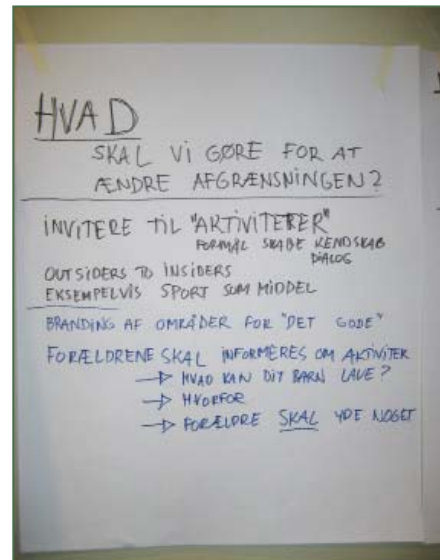 HVAD
SKAL Vi GØRE FOR AT
ÆNDRE AFGRÆNSNINGEN?
INVITERE TIL "AKTIVITETER"
FORMÅL SKABE KENDSKAB
DIALOG
OUTSIDERS TO INSIDERS
EKSEMPELVIS SPORT SOM MIDDEL
BRANDING AF OMRÅDER FOR "DET GODE"
FORÆLDRENE SKAL INFORMERES OM AKTIVITER
→ HVAD KAN DIT BARN LAVE?
→ HVORFOR
→ FORÆLDRE SKAL YDE NOGET